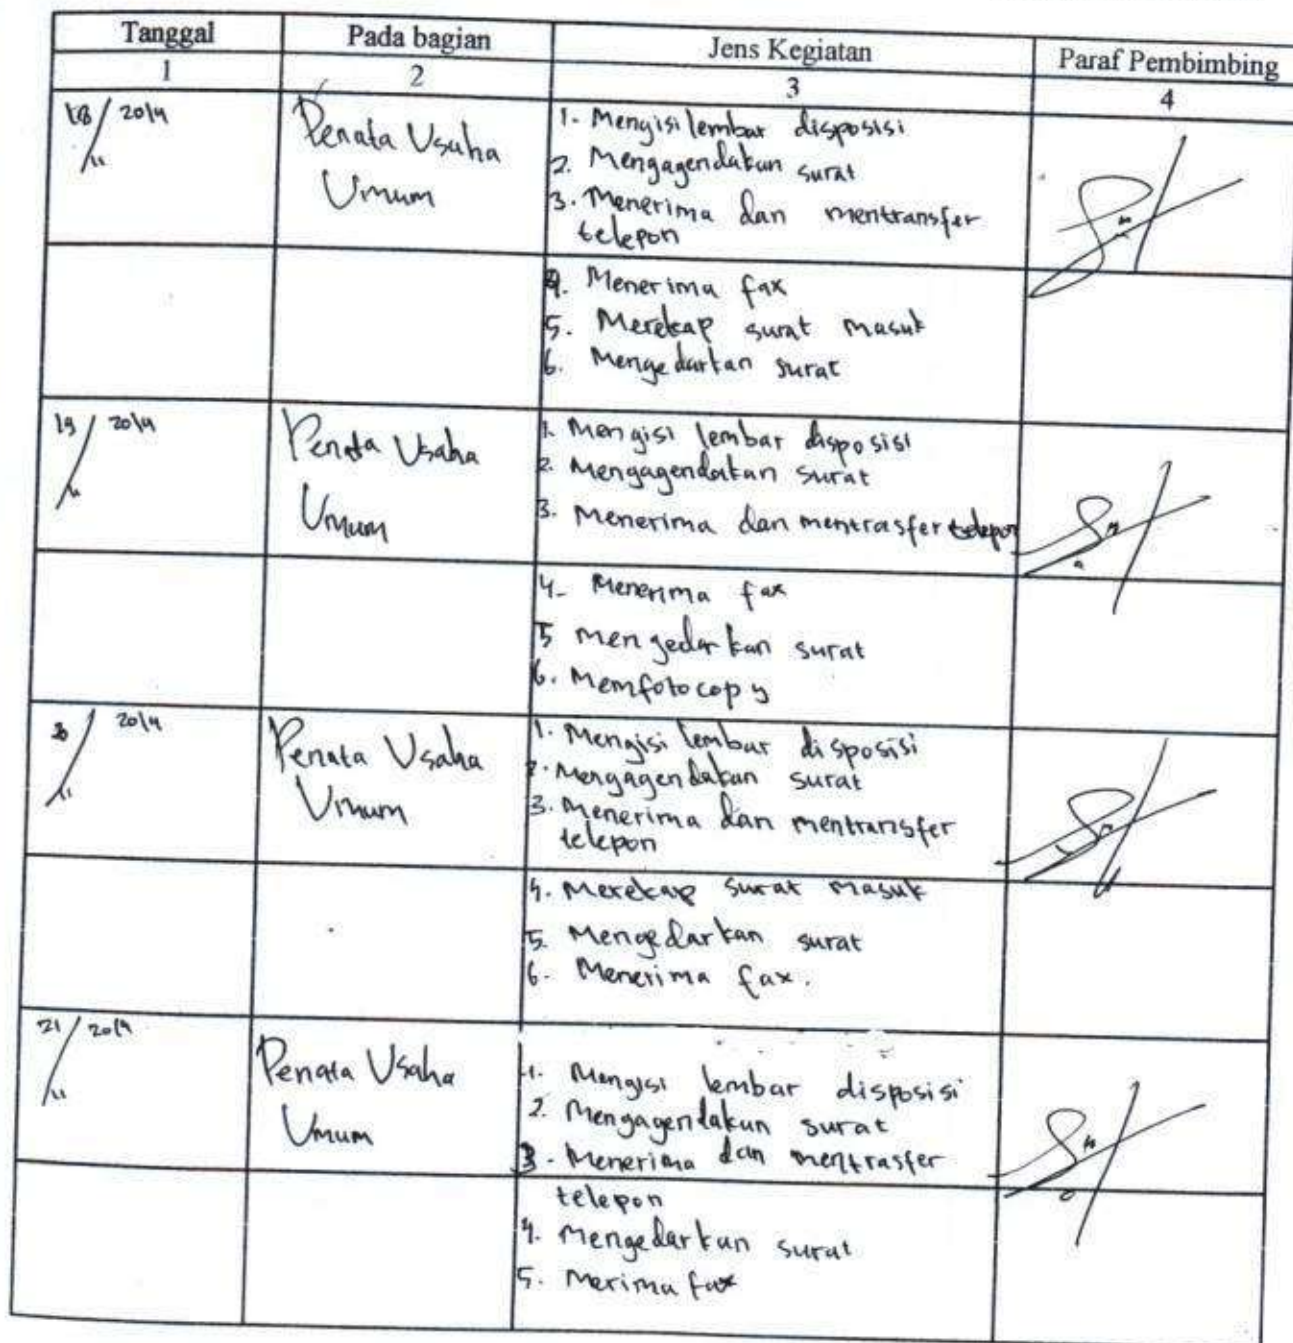 Tanggal Pada bagian Jens Kegiatan Paraf Pembimbing
1 2 3 4
18/11 2014 Penata Usaha Umum
1. Mengisi lembar disposisi
2. Mengagendakan surat
3. Menerima dan mentransfer
telepon
4. Menerima fax
5. Merekap surat masuk
6. Mengedarkan surat
19/11 2014 Penata Usaha Umum
1. Mengisi lembar disposisi
2. Mengagendakan surat
3. Menerima dan mentrasfer telepon
4. Menerima fax
5 mengedarkan surat
6. Memfotocopy
20/11 2014 Penata Usaha Umum
1. Mengisi lembar disposisi
2. Mengagendakan surat
3. Menerima dan mentransfer
telepon
4. Merekap surat masuk
5. Mengedarkan surat
6. Menerima fax.
21/11 2014 Penata Usaha Umum
1. Mengisi lembar disposisi
2. Mengagendakan surat
3. Menerima dan mentrasfer
telepon
4. Mengedarkan surat
5. Merima fax